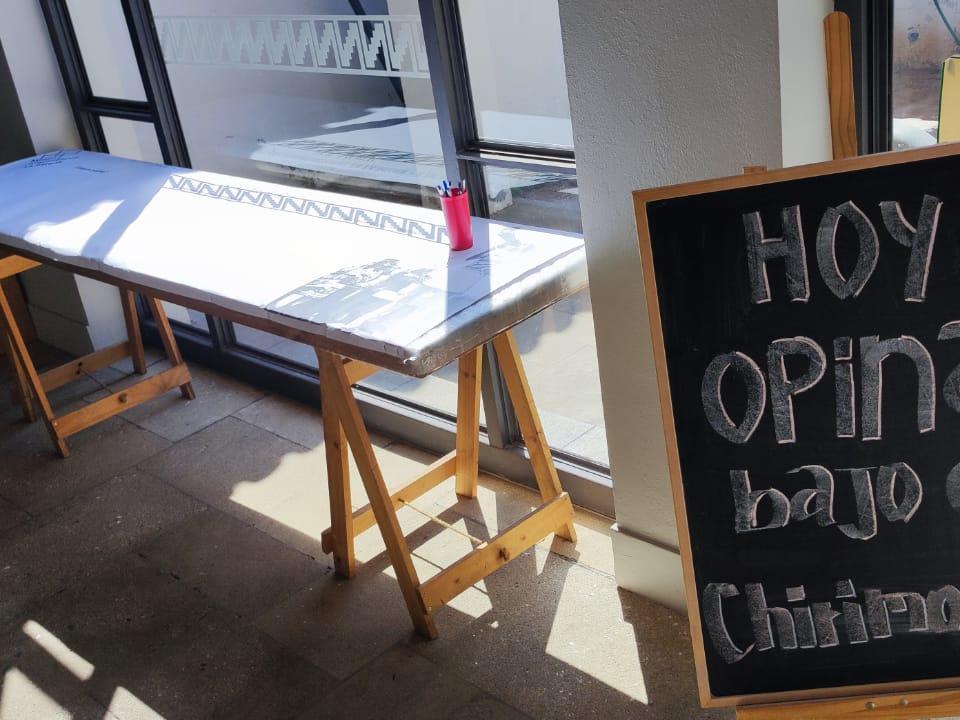 HOY
OPINA
bajo
Chirimo